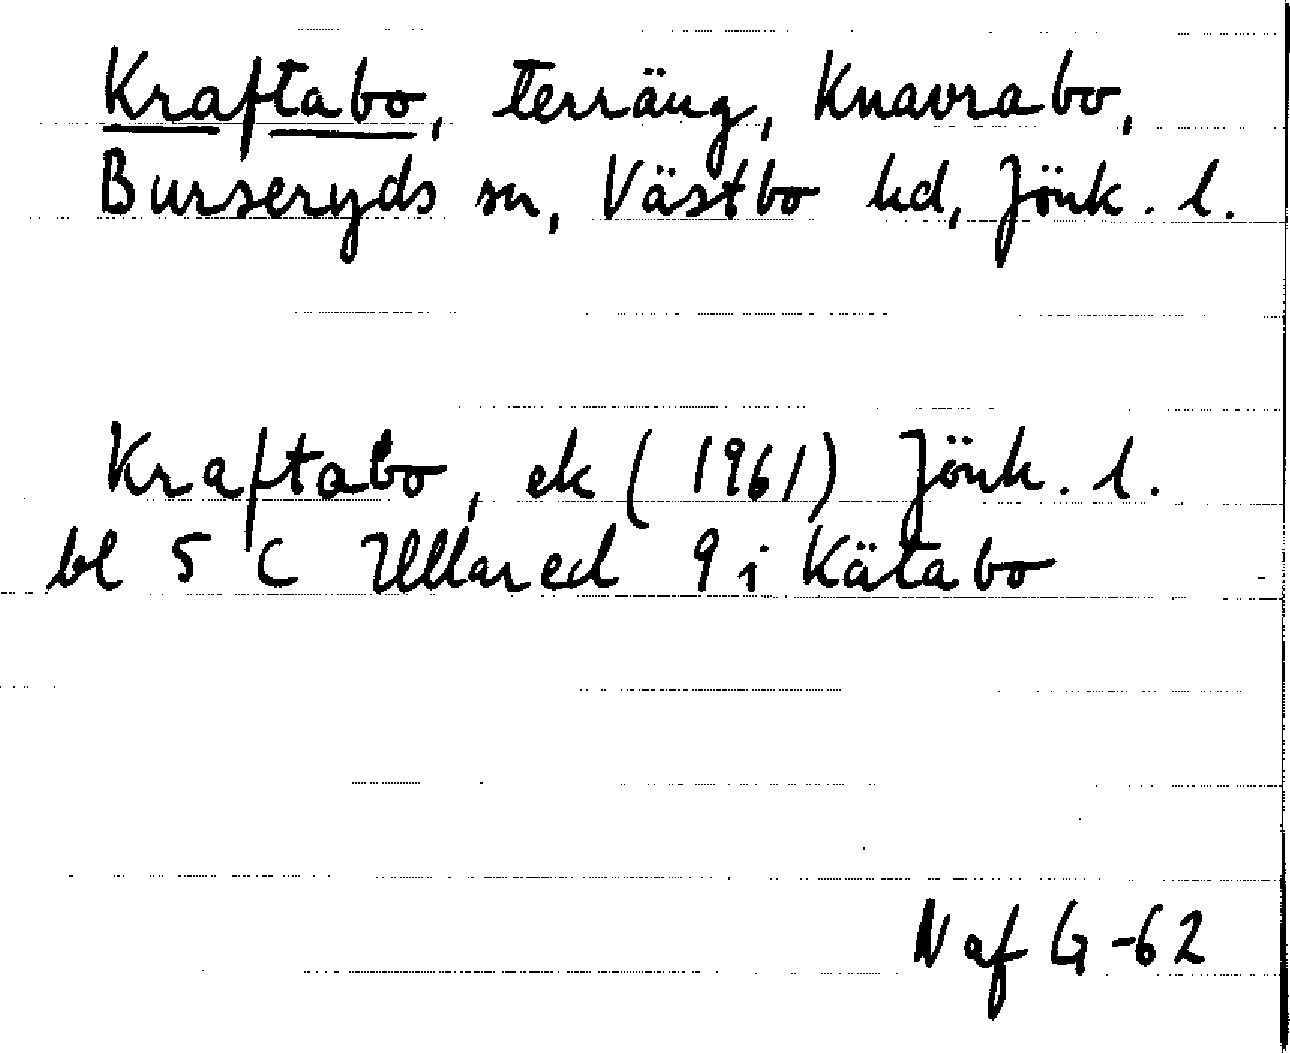 Kraftabo, terräng, Knavrabo,
Burseryds sn, Västbo hd, Jönk. l.
Kraftabo, ek (1961) Jönk. l.
bl 5 C Ullared 9 i Kätabo
N af G -62